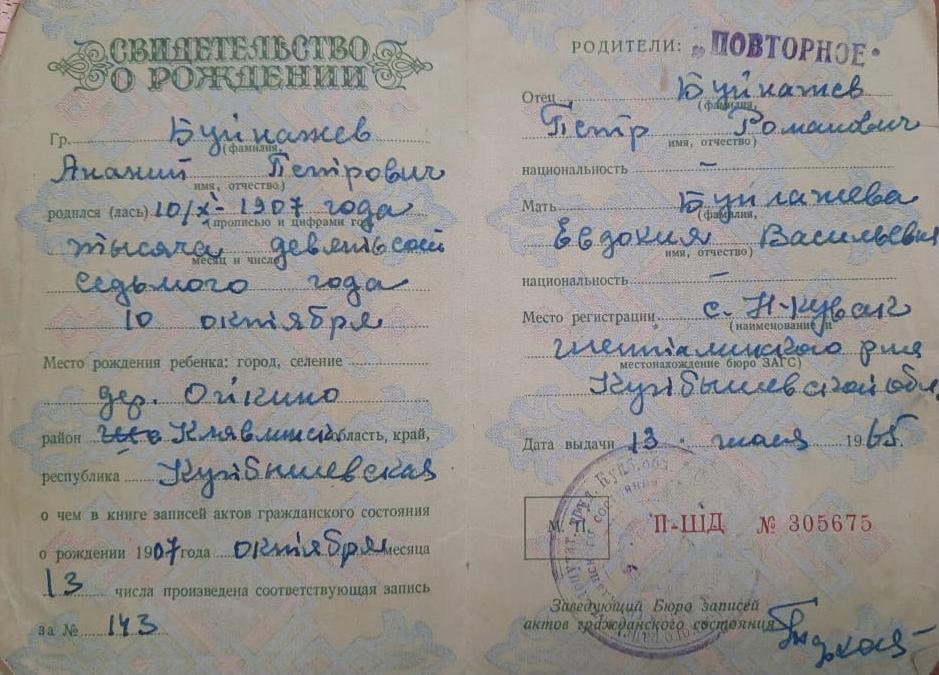 СВИДЕТЕЛЬСТВО
О РОЖДЕНИИ
Гр. Буйнажев
(фамилия,
Ананий Петрович
имя, отчество)
родился (лась) 10/X - 1907 года
(прописью и цифрами год,
тысяча девятьсот
месяц и число)
седьмого года
10 октября
Место рождения ребенка: город, селение
дер. Ойкино
район Клявлинск область, край,
республика Куйбышевская
о чем в книге записей актов гражданского состояния
о рождении 1907 года октября месяца
13 числа произведена соответствующая запись
за № 143
РОДИТЕЛИ: „ПОВТОРНОЕ"
Отец Буйнажев
(фамилия,
Петр Романович
имя, отчество)
национальность –
Мать Буйнажева
(фамилия,
Евдокия Васильевна
имя, отчество)
национальность –
Место регистрации с. Н-Кувак
(наименование и
Шенталинского р-на
местонахождение бюро ЗАГС)
Куйбышевской обл.
Дата выдачи 13 " 1965.
М. П. П-ШД № 305675
Заведующий Бюро записей
актов гражданского состояния